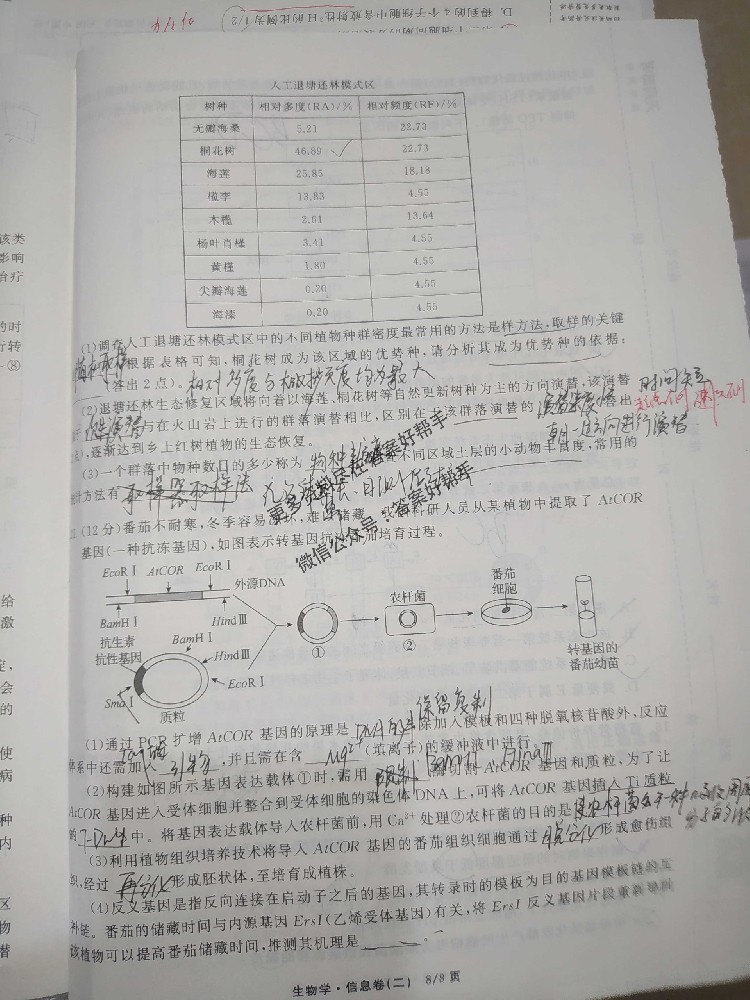 D. 得到的 4 个子细胞中含放射性³H 的比例为 1/2
人工退塘还林模式区
树种 相对多度(RA)/% 相对频度(RF)/%
无瓣海桑 5.21 22.73
桐花树 46.89 22.73
海莲 25.85 18.18
榄李 13.83 4.55
木榄 2.61 13.64
杨叶肖槿 3.41 4.55
黄槿 1.80 4.55
尖瓣海莲 0.20 4.55
海漆 0.20 4.55
(1)调查人工退塘还林模式区中的不同植物种群密度最常用的方法是样方法,取样的关键
根据表格可知,桐花树成为该区域的优势种,请分析其成为优势种的依据:
(答出 2 点)。相对多度与相对频度均为最大
(2)退塘还林生态修复区域将向着以海莲、桐花树等自然更新树种为主的方向演替,该演替
次生演替 与在火山岩上进行的群落演替相比,区别在于该群落演替的
,逐渐达到乡土红树植物的生态恢复。
(3)一个群落中物种数目的多少称为 物种 不同区域土层的小动物丰富度,常用的
计方法有
更多资料尽在答案好帮手
微信公众号:答案好帮手
21.(12 分)番茄不耐寒,冬季容易 坏,难以储藏。我 科研人员从某植物中提取了 AtCOR
基因(一种抗冻基因),如图表示转基因抗冻 茄培育过程。
EcoRⅠ AtCOR EcoRⅠ
外源DNA
BamHⅠ HindⅢ
抗生素
抗性基因
BamHⅠ
HindⅢ
EcoRⅠ
SmaⅠ
质粒
①
农杆菌
②
番茄
细胞
转基因的
番茄幼苗
(1)通过 PCR 扩增 AtCOR 基因的原理是 DNA的半保留复制 除加入模板和四种脱氧核苷酸外,反应
体系中还需加入 引物 ,并且需在含 Mg²⁺ (填离子)的缓冲液中进行。
(2)构建如图所示基因表达载体①时,需用 限制 BamHⅠ、HindⅢ 切割 AtCOR 基因和质粒,为了让
AtCOR 基因进入受体细胞并整合到受体细胞的染色体 DNA 上,可将 AtCOR 基因插入 Ti 质粒
的 T-DNA 中。将基因表达载体导入农杆菌前,用 Ca²⁺ 处理②农杆菌的目的是 使农杆菌处于一种
(3)利用植物组织培养技术将导入 AtCOR 基因的番茄组织细胞通过 脱分化 形成愈伤组
织,经过 再分化 形成胚状体,至培育成植株。
(4)反义基因是指反向连接在启动子之后的基因,其转录时的模板为目的基因模板链的互
补链。番茄的储藏时间与内源基因 Ers1(乙烯受体基因)有关,将 Ers1 反义基因片段重新导入
该植物可以提高番茄储藏时间,推测其机理是 。
生物学·信息卷(二) 8/8 页